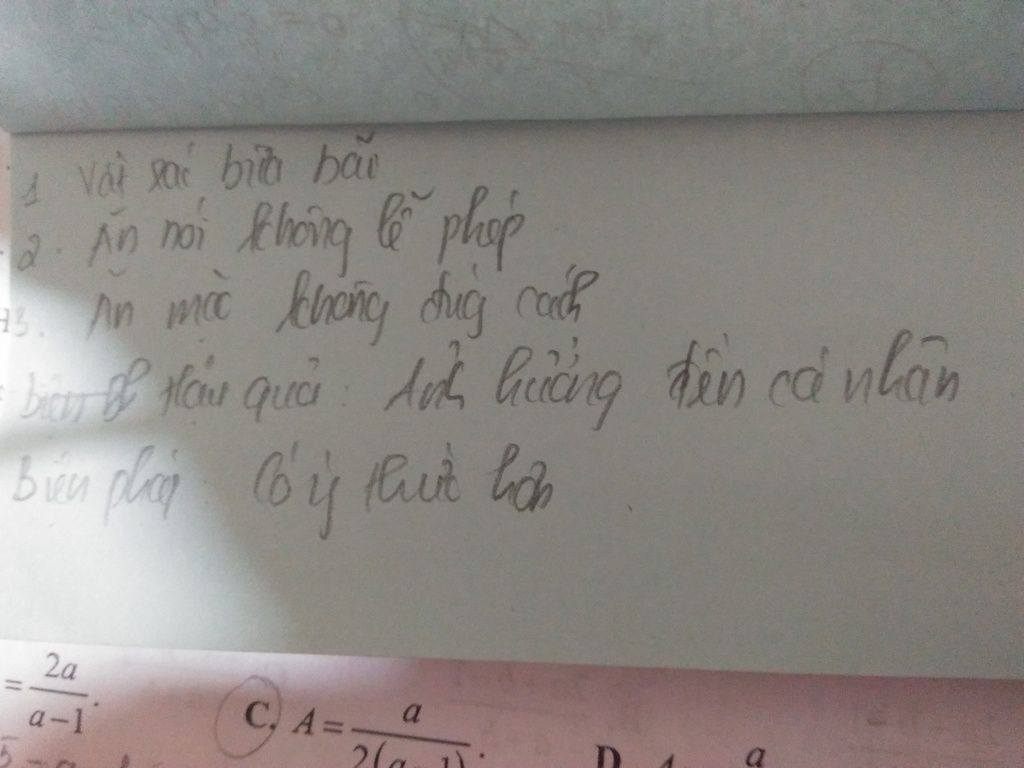 1 Vứt rác bừa bãi
2. Ăn nói không lễ phép
3. Ăn mặc không đúg cách
Hậu quả: Ảnh hưởng đến cá nhân
Biện pháp: Có ý thức hơn
= 2a / a-1.
C. A = a / 2(a-1).
D. a